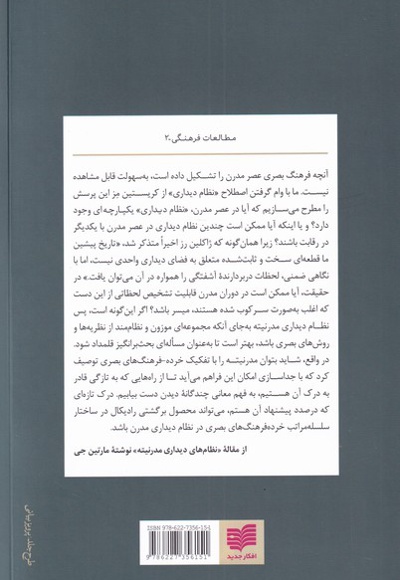 مطالعات فرهنگی-۲
آنچه فرهنگ بصری عصر مدرن را تشکیل داده است، به‌سهولت قابل مشاهده
نیست. ما با وام گرفتن اصطلاح «نظام دیداری» از کریستین مِز این پرسش را
مطرح می‌سازیم که آیا در عصر مدرن، «نظام دیداری» یکپارچه‌ای وجود
دارد؟ و یا اینکه آیا ممکن است چندین نظام دیداری در عصر مدرن با یکدیگر
در رقابت باشند؟ زیرا همان‌گونه که ژاکلین رز اخیراً متذکر شد، «تاریخ پیشین
ما قطعه‌ای سخت و تثابت‌شده متعلق به فضای دیداری واحدی نیست، اما با
نگاهی ضمنی، لحظات دربردارندهٔ آشفتگی را همواره در آن می‌توان یافت.» در
حقیقت، آیا ممکن است در دوران مدرن قابلیت تشخیص لحظاتی از این دست
که اغلب به‌صورت سرکوب شده هستند، میسر باشد؟ اگر این‌گونه است، پس
نظام دیداری مدرنیته به‌جای آنکه مجموعه‌ای موزون و نظام‌مند از نظریه‌ها و
روش‌های بصری باشد، بهتر است تا به‌عنوان مسأله‌ای بحث‌برانگیز قلمداد شود.
در واقع، شاید بتوان مدرنیته را با تفکیک خرده-فرهنگ‌های بصری توصیف
کرد که با جداسازی امکان این فراهم می‌آید تا از راه‌هایی که به تازگی قادر
به درک آن هستیم، به فهم معانی چندگانهٔ دیدن دست بیابیم. درک تازه‌ای
که درصدد پیشنهاد آن هستم، می‌تواند محصول برگشتی رادیکال در ساختار
سلسله‌مراتب خرده‌فرهنگ‌های بصری در نظام دیداری مدرن باشد.
از مقالهٔ «نظام‌های دیداری مدرنیته» نوشتهٔ مارتین جی
طرح جلد: پرویز بیانی
ISBN: 978-622-7356-15-1
9 786227 356151
افکار جدید